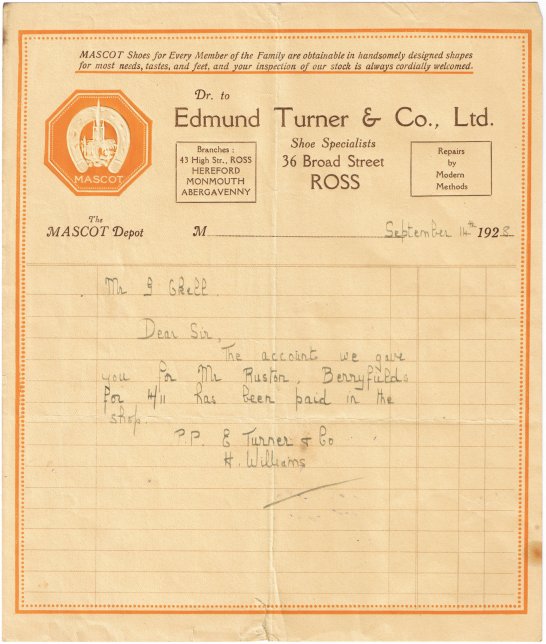 MASCOT Shoes for Every Member of the Family are obtainable in handsomely designed shapes
for most needs, tastes, and feet, and your inspection of our stock is always cordially welcomed.
MASCOT
Dr. to
Edmund Turner & Co., Ltd.
Shoe Specialists
36 Broad Street
ROSS
Branches :
43 High Str., ROSS
HEREFORD
MONMOUTH
ABERGAVENNY
Repairs
by
Modern
Methods
The
MASCOT Depot
M September 14th 1928
Mr
Dear Sir,
The account we gave
you for Mr Ruston, Berryfields
for 4/11 has been paid in the
shop.
P.P. E Turner & Co
H. Williams